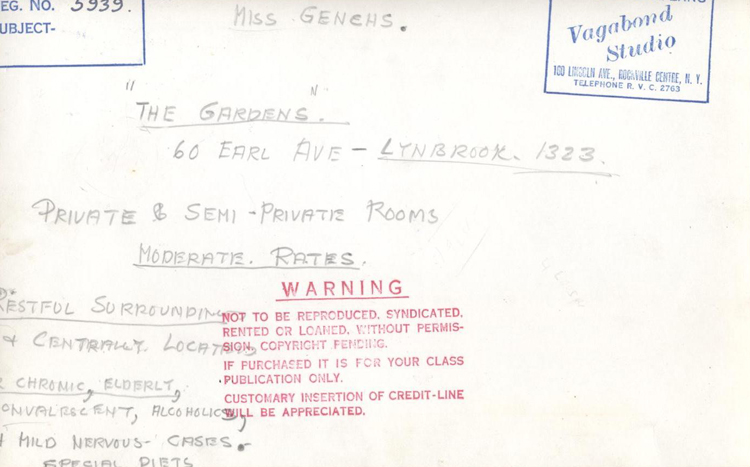 EG. NO. 5939.
UBJECT-
MISS GENCHS.
Vagabond
Studio
100 LINCOLN AVE., ROCKVILLE CENTRE, N. Y.
TELEPHONE R. V. C. 2763
"THE GARDENS".
60 EARL AVE - LYNBROOK. 1323.
PRIVATE & SEMI-PRIVATE ROOMS
MODERATE. RATES.
RESTFUL SURROUNDING
& CENTRALLY LOCATED
R CHRONIC, ELDERLY,
ONVALESCENT, ALCOHOLICS,
MILD NERVOUS- CASES.
SPECIAL DIETS
WARNING
NOT TO BE REPRODUCED, SYNDICATED,
RENTED OR LOANED, WITHOUT PERMIS-
SION, COPYRIGHT PENDING.
IF PURCHASED IT IS FOR YOUR CLASS
PUBLICATION ONLY.
CUSTOMARY INSERTION OF CREDIT-LINE
WILL BE APPRECIATED.